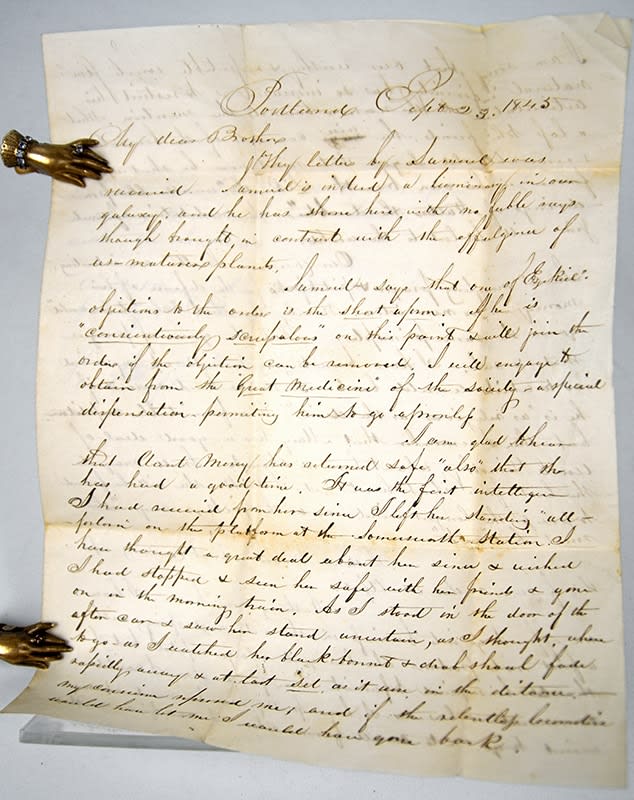 Portland Sept 23. 1845
My dear Brother
Thy letter by Samuel was
received. Samuel is indeed a luminary in our
galaxy, and he has shone here with no feeble rays
though brought in contrast with the effulgence of
us maturer planets.
Samuel says that one of Ezekiel's
objections to the order is the short apron. If he is
"conscientiously scrupulous" on this point & will join the
order if the objection can be removed I will engage to
obtain from the "Great Medicine" of the society a special
dispensation permitting him to go apronless
I am glad to hear
that Aunt Mercy has returned safe "also" that she
has had a good time. It was the first intelligence
I had received from her since I left her standing "all-
forlorn" on the platform at the Somersworth Station. I
have thought a great deal about her since & wished
I had stopped & seen her safe with her friends & gone
on in the morning train. As I stood in the door of the
after car & saw her stand uncertain, as I thought, where
to go as I watched her black bonnet & drab shawl fade
rapidly away & at last set as it were in the distance —
my conscience reproved me, and if the relentless locomotive
would have let me I would have gone back.